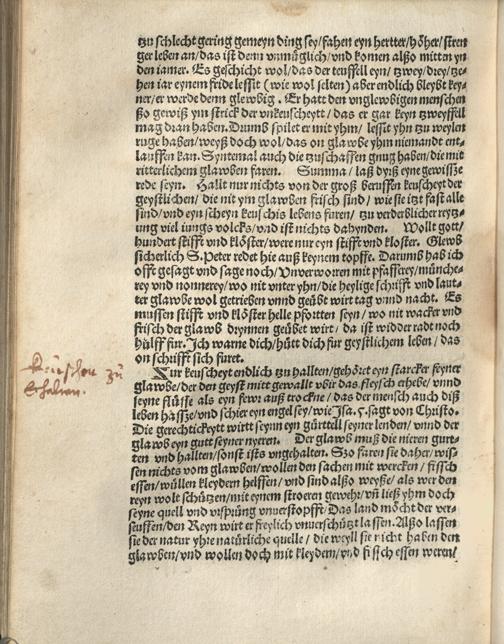 tzu schlecht gering gemeyn ding sey/ fahen eyn hertter/ höher/ stren
ger leben an/ das ist denn vnmüglich/ vnd komen alßo mitten yn
den iamer. Es geschicht wol/ das der teuffell eyn/ tzwey/ drey/ tze-
hen iar eynem fride lessit (wie wol selten) aber endlich bleybt key-
ner/ er werde denn glewbig. Er hatt den vnglewbigen menschen
ßo gewiß ym strick der vnkeuscheytt/ das er gar keyn tzweyffell
mag dran haben. Drumb spilet er mit yhm/ lessit yhn tzu weylen
ruge haben/ weyß doch wol/ das on glawbe yhm niemandt ent-
lauffen kan. Syntemal auch die tzuschaffen gnug haben/ die mit
ritterlichem glawben faren. Summa/ laß dyß eyne gewisse
rede seyn. Hallt nur nichts von der groß beruffen keuscheyt der
geystlichen/ die nit ym glawben frisch sind/ wie sie itzt fast alle
sind/ vnd eyn scheyn keuschis lebens furen/ tzu verderblicher reytz-
ung viel iungs volcks/ vnd ist nichts dahynden. Wollt gott/
hundert stifft vnd klöster/ were nur eyn stifft vnd kloster. Glewb
sicherlich S. Peter redt hie auß keynem topffe. Darumb hab ich
offt gesagt vnd sage noch/ Vnverworen mit pfafferey/ münche-
rey vnd nonnerey/ wo nit vnter yhn/ die heylige schrifft vnd laut-
ter glawbe wol getrieben vnnd geübt wirt tag vnnd nacht. Es
mussen stifft vnd klöster helle pfortten seyn/ wo nit wacker vnd
frisch der glawb drynnen geübet wirt/ da ist widder radt noch
hülff fur. Ich warne dich/ hütt dich fur geystlichem leben/ das
on schrifft sich furet.
Zur keuscheyt endlich tzu hallten/ gehöret eyn starcker feyner
glawbe/ der den geyst mitt gewallt vbir das fleysch erhebe/ vnnd
seyne flüsse als eyn fewr auß trockne/ das der mensch auch diß
leben hasse/ vnd schier eyn engel sey/ wie Isa. 5. sagt von Christo.
Die gerechtickeytt wirtt seynn eyn gürttell seyner lenden/ vnnd der
glawb eyn gutt seyner nyeren. Der glawb muß die nieren gurt-
ten vnd hallten/ sonst ists vngehalten. Szo faren sie daher/ wis-
sen nichts vom glawben/ wollen den sachen mit wercken/ fissch
essen/ wüllen kleydern helffen/ vnd sind alßo weyße/ als wer den
reyn wolt schützen/ mit eynem stroeren gewehr/ vñ ließ yhm doch
seyne quell vnd vrsprüng vnuerstopfft. Das land möcht der ver-
seuffen/ den Reyn wirt er freylich vnuerschützt lassen. Alßo lassen
sie der natur yhre natürliche quelle/ die weyll sie nicht haben den
glawben/ vnd wollen doch mit kleydern/ vnd fissch essen weren/
zu
Erhalten.